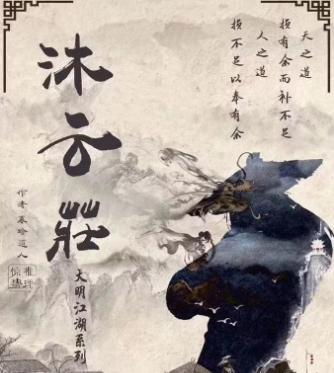 天之道
损有余而补不足
人之道
损不足以奉有余
沐云莊
大明江湖系列
作者
道人